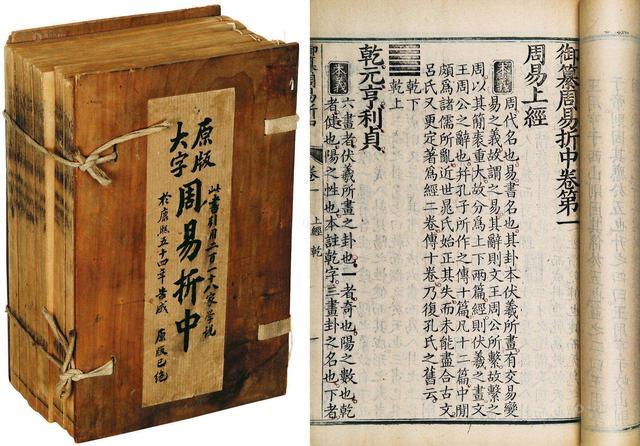 原版
大字
周易折中
此書引用二百十八家學說
於康熙五十四年告成 原版已絕
御纂周易折中卷第一
周易上經
本義 周代名也易書名也其卦本伏羲所畫有交易變
易之義故謂之易其辭則文王周公所繫故繫之
周以其簡袠重大故分為上下兩篇經則伏羲之畫文
王周公之辭也并孔子所作之傳十篇凡十二篇中閒
頗為諸儒所亂近世晁氏始正其失而未能盡合古文
呂氏又更定著為經二卷傳十卷乃復孔氏之舊云
乾下
乾上
乾元亨利貞
本義 六畫者伏羲所畫之卦也一者奇也陽之數也乾
者健也陽之性也本註乾字三畫卦之名也下者
御纂周易折中 卷一 上經 乾